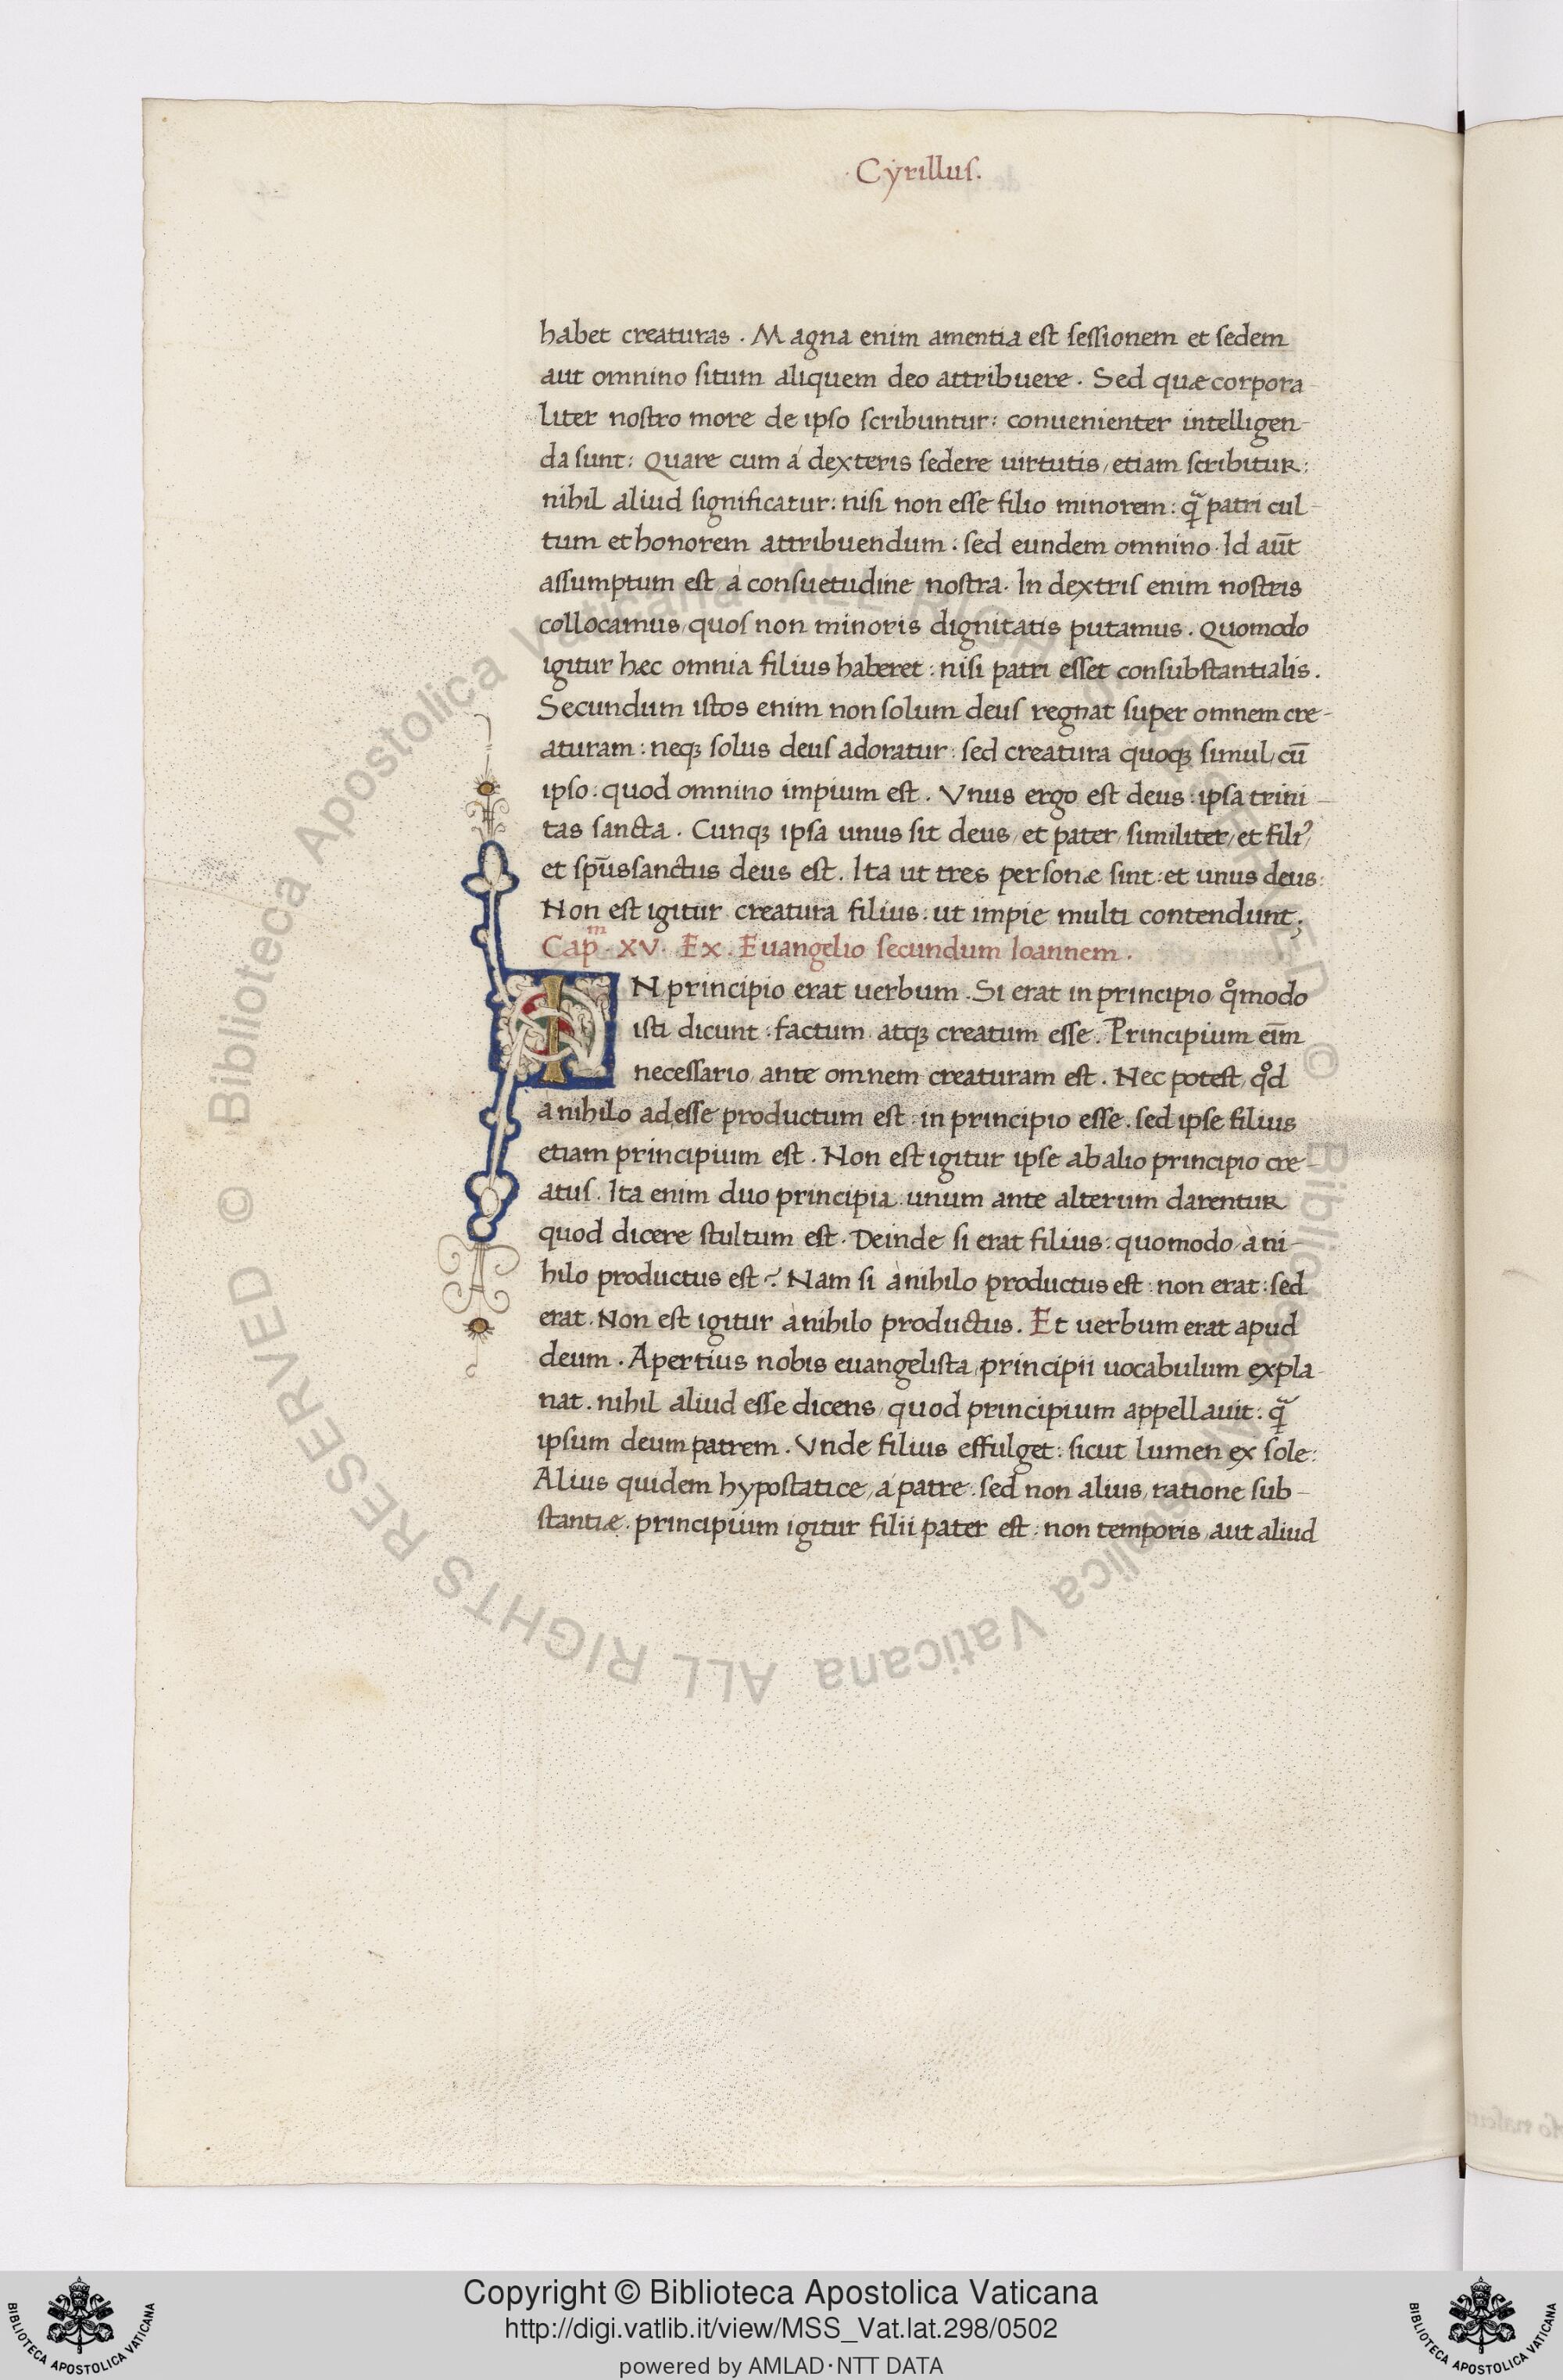 · Cyrillus.
habet creaturas . Magna enim amentia est sessionem et sedem
aut omnino situm aliquem deo attribuere . Sed quæ corpora-
liter nostro more de ipso scribuntur: conuenienter intelligen-
da sunt: Quare cum á dexteris sedere uirtutis, etiam scribitur:
nihil aliud significatur: nisi non esse filio minorem: q̃ patri cul-
tum et honorem attribuendum: sed eundem omnino. Id aut̄
assumptum est á consuetudine nostra. In dextris enim nostris
collocamus, quos non minoris dignitatis putamus. Quomodo
igitur hæc omnia filius haberet: nisi patri esset consubstantialis.
Secundum istos enim non solum deus regnat super omnem cre-
aturam: neqꝫ solus deus adoratur: sed creatura quoqꝫ simul, cū
ipso: quod omnino impium est. Vnus ergo est deus: ipsa trini-
tas sancta. Cunqꝫ ipsa unus sit deus, et pater, similiter, et filiꝰ,
et sp̄ussanctus deus est. Ita ut tres personæ sint: et unus deus:
Non est igitur creatura filius: ut impie multi contendunt;
Cap.ᵐ XV. Ex. Euangelio secundum Ioannem.
IN principio erat uerbum. Si erat in principio, qͦmodo
isti dicunt: factum atqꝫ creatum esse. Principium eīm
necessario, ante omnem creaturam est. Nec potest, qͦd
a nihilo ad esse productum est: in principio esse. sed ipse filius
etiam principium est. Non est igitur ipse ab alio principio cre-
atus. Ita enim duo principia: unum ante alterum darentur
quod dicere stultum est. Deinde si erat filius: quomodo, à ni-
hilo productus est? Nam si à nihilo productus est: non erat: sed
erat. Non est igitur à nihilo productus. Et uerbum erat apud
deum. Apertius nobis euangelista, principii uocabulum expla-
nat. nihil aliud esse dicens, quod principium appellauit: q̃
ipsum deum patrem. Vnde filius effulget: sicut lumen ex sole:
Alius quidem hypostatice, á patre. sed non alius, ratione sub-
stantiæ. principium igitur filii pater est: non temporis, aut aliud
© Biblioteca Apostolica Vaticana ALL RIGHTS RESERVED
© Biblioteca Apostolica Vaticana ALL RIGHTS RESERVED
Copyright © Biblioteca Apostolica Vaticana
http://digi.vatlib.it/view/MSS_Vat.lat.298/0502
powered by AMLAD·NTT DATA
BIBLIOTECA APOSTOLICA VATICANA
BIBLIOTECA APOSTOLICA VATICANA